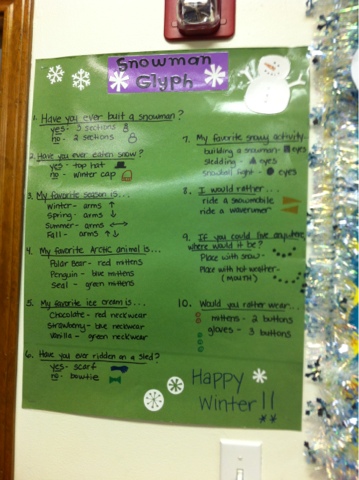 Snowman
Glyph
1. Have you ever built a snowman?
yes - 3 sections
no - 2 sections
2. Have you ever eaten snow?
yes - top hat
no - winter cap
3. My favorite season is...
Winter - arms ↑
Spring - arms ↓
Summer - arms →
Fall - arms ↑↓
4. My favorite ARCTIC animal is...
Polar Bear - red mittens
Penguin - blue mittens
Seal - green mittens
5. My favorite ice cream is...
Chocolate - red neckwear
Strawberry - blue neckwear
Vanilla - green neckwear
6. Have you ever ridden on a sled?
yes - scarf
no - bowtie
7. My favorite snowy activity
building a snowman - eyes
sledding - eyes
snowball fight - eyes
8. I would rather...
ride a snowmobile
ride a waverunner
9. If you could live anywhere,
where would it be?
Place with snow -
Place with hot weather -
(MOUTH)
10. Would you rather wear...
mittens - 2 buttons
gloves - 3 buttons
Happy
Winter!!